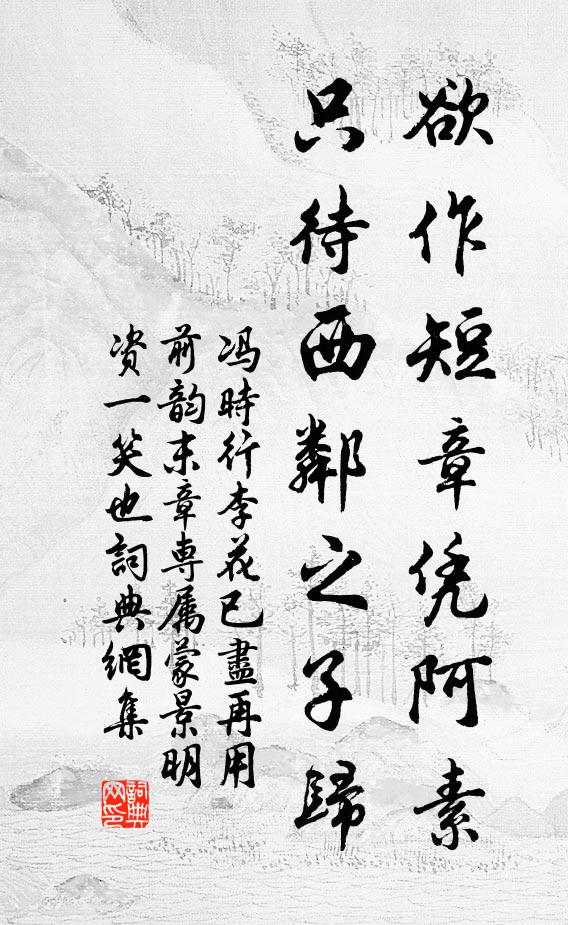 欲作短章凭阿素
只待西鄰之子歸
冯時行李花已盡再用
前韵末章専属蒙景明
资一笑也詞典網集
詞典
网印